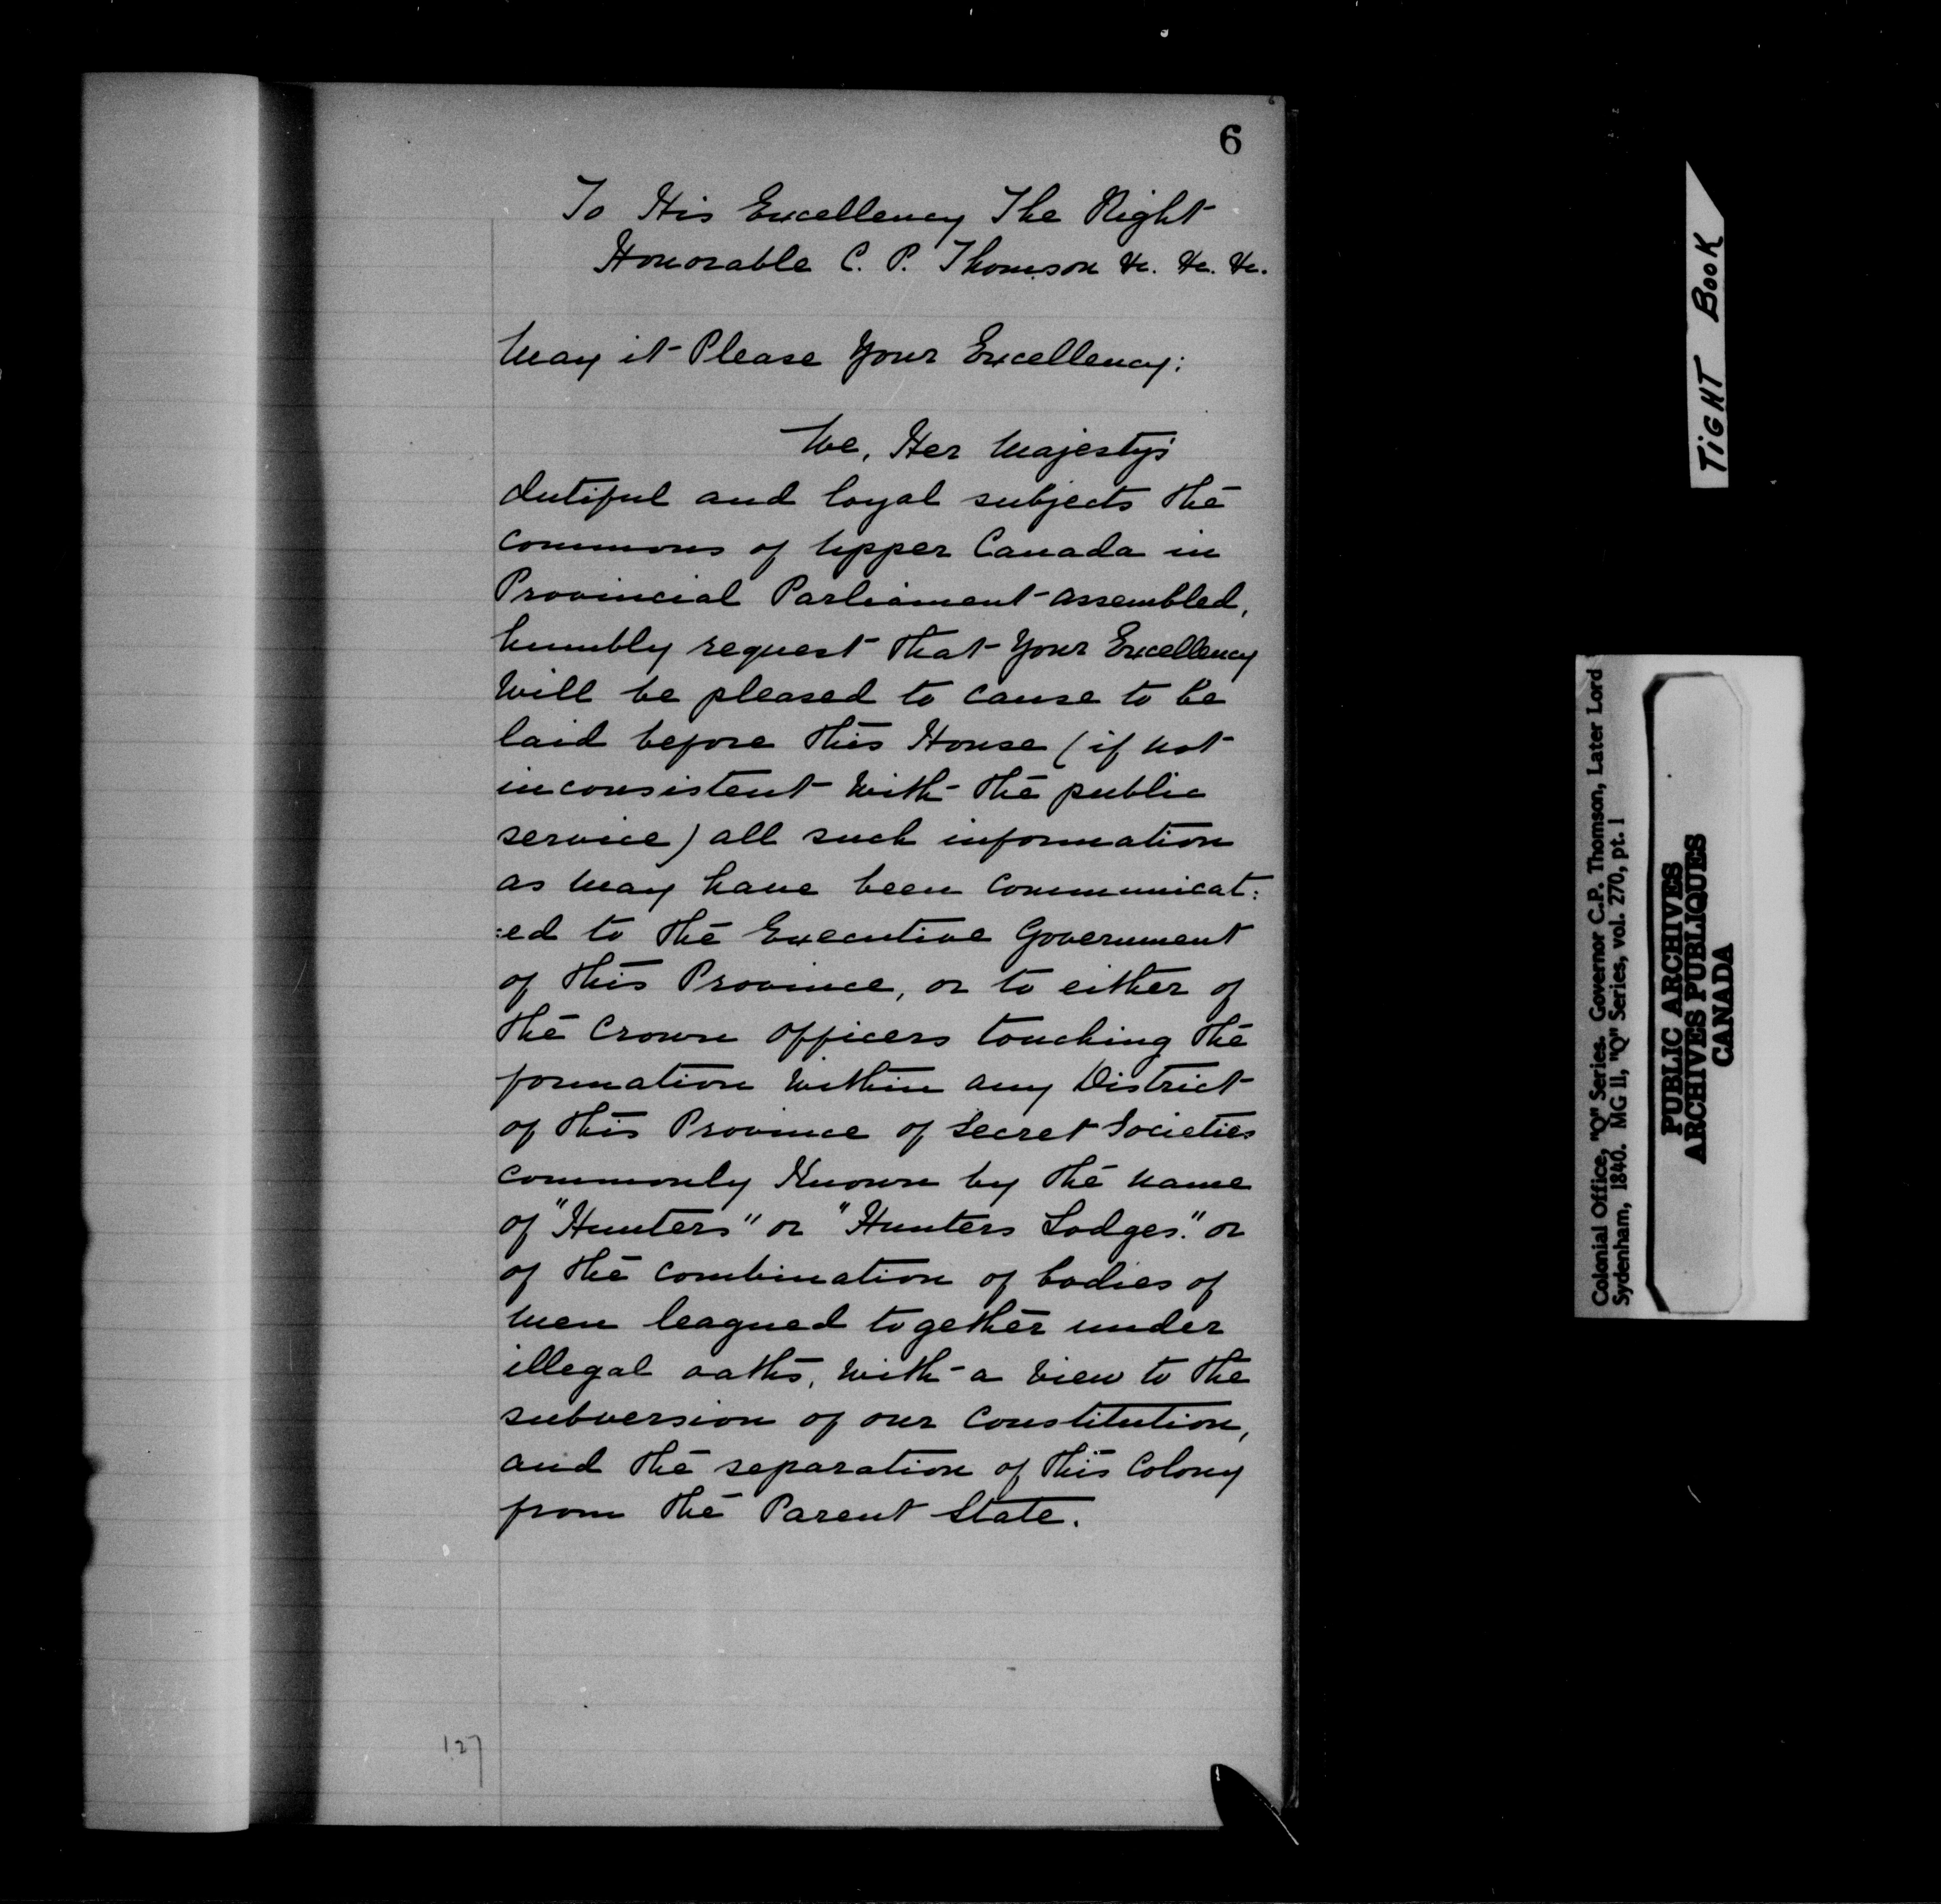 6
To His Excellency The Right
Honorable C. P. Thomson &c. &c. &c.
May it Please Your Excellency:
We, Her Majesty's
dutiful and loyal subjects the
Commons of Upper Canada in
Provincial Parliament assembled,
humbly request that Your Excellency
will be pleased to cause to be
laid before this House (if not
inconsistent with the public
service) all such information
as may have been communicat:
:ed to the Executive Government
of this Province, or to either of
the Crown Officers touching the
formation within any District
of this Province of Secret Societies
commonly Known by the name
of "Hunters" or "Hunters Lodges." or
of the combination of bodies of
men leagued together under
illegal oaths, with a view to the
subversion of our Constitution,
and the separation of this Colony
from the Parent State.
127
TIGHT BOOK
Colonial Office, "Q" Series. Governor C.P. Thomson, Later Lord
Sydenham, 1840. MG 11, "Q" Series, vol. 270, pt. 1
PUBLIC ARCHIVES
ARCHIVES PUBLIQUES
CANADA